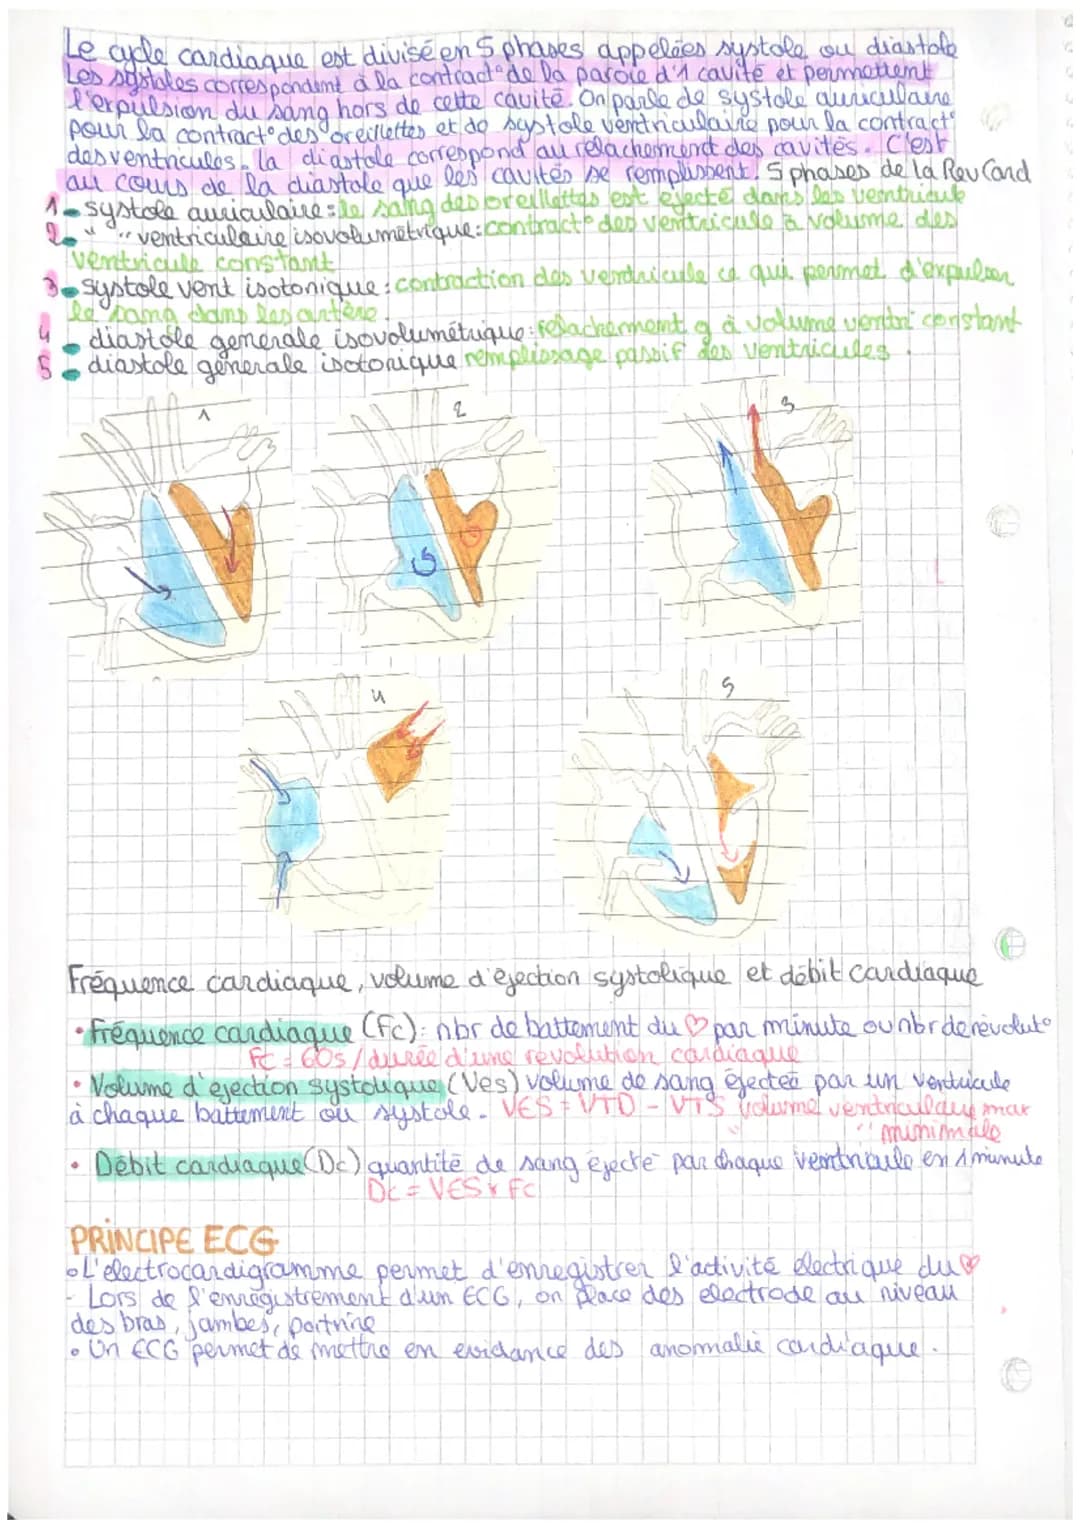 Le cycle cardiaque est divisé en 5 phases appelées systole ou diastole
Les systoles correspondent à la contract° de la paroie d'1 cavité et permettent
l'expulsion du sang hors de cette cavité. On parle de systole auriculaire
pour la contract° des oreillettes et de systole ventriculaire pour la contract°
des ventricules. la diastole correspond au relachement des cavités. C'est
au cours de la diastole que les cavités se remplissent. 5 phases de la Rev Card
1 - systole auriculaire : le sang des oreillettes est ejecté dans les ventricule
2 - " " ventriculaire isovolumétrique : contract° des ventricule à volume des
ventricule constant
3 - systole vent isotonique : contraction des ventricule ce qui permet d'expulser
le sang dans les artère.
4 - diastole generale isovolumétrique : relachement g à volume ventri constant
5 - diastole générale isotonique remplissage passif des ventricules.
1
2
3
4
5
Fréquence cardiaque, volume d'éjection systolique et débit cardiaque
• Fréquence cardiaque (Fc) : nbr de battement du ♡ par minute ou nbr de révolut°
Fc = 60s / durée d'une revolution cardiaque
• Volume d'ejection systolique (Ves) volume de sang éjecteé par un ventricule
à chaque battement ou systole - VES = VTD - VTS volume ventriculaire max
" " minimale
• Débit cardiaque (Dc) quantité de sang éjecté par chaque ventricule en 1 minute
Dc = VES x Fc
PRINCIPE ECG
• L'electrocardigramme permet d'enregistrer l'activité électrique du ♡
- Lors de l'enregistrement d'un ECG, on place des electrode au niveau
des bras, jambes, poitrine
• Un ECG permet de mettre en evidance des anomalie cardiaque.